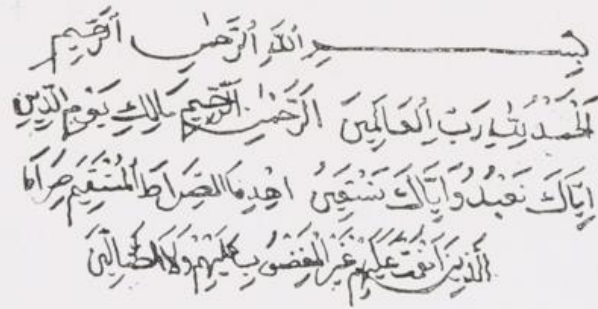 بِسْمِ اللّٰهِ الرَّحْمٰنِ الرَّحِيمِ
اَلْحَمْدُ لِلّٰهِ رَبِّ الْعَالَمِينَ الرَّحْمٰنِ الرَّحِيمِ مَالِكِ يَوْمِ الدِّينِ
اِيَّاكَ نَعْبُدُ وَاِيَّاكَ نَسْتَعِينُ اِهْدِنَا الصِّرَاطَ الْمُسْتَقِيمَ صِرَاطَ
الَّذِينَ اَنْعَمْتَ عَلَيْهِمْ غَيْرِ الْمَغْضُوبِ عَلَيْهِمْ وَلَا الضَّالِّينَ